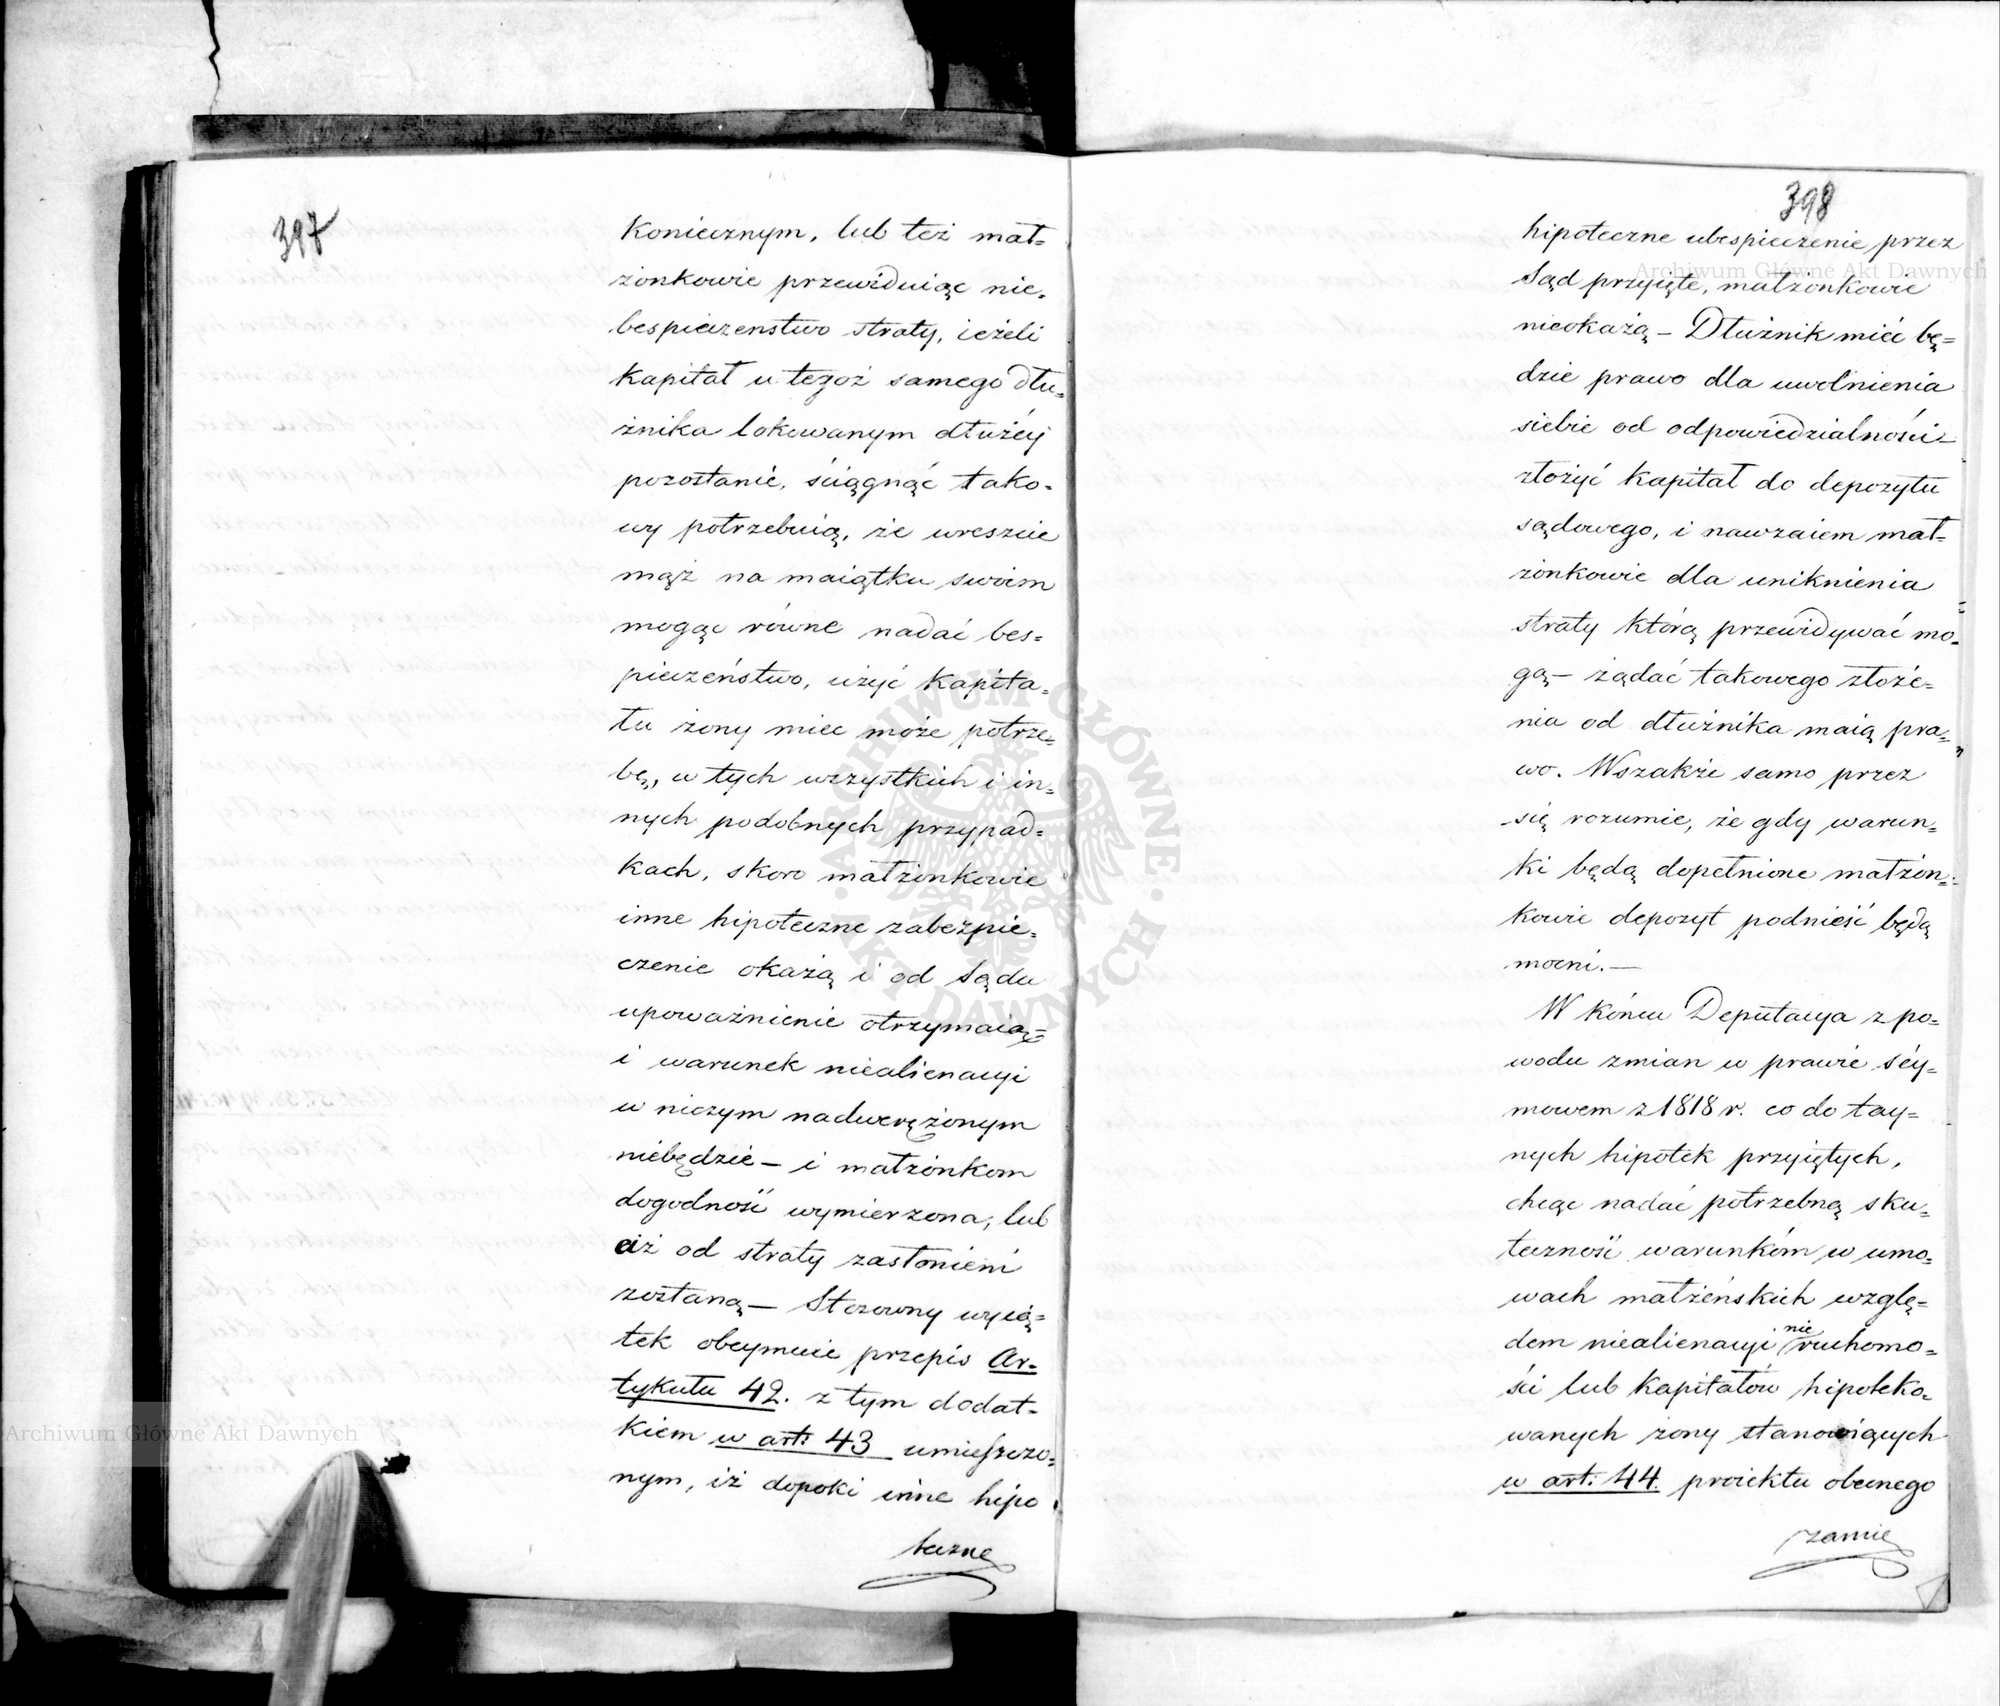 397
koniecznym, lub też mał=
żonkowie przewiduiąc nie=
bespieczenstwo straty, ieżeli
kapitał u tegoż samego dłu=
żnika lokowanym dłużéy
pozostanie, ściągnąć tako=
wy potrzebuią, że wreszcie
mąż na maiątku swoim
mogąc równe nadać bes=
pieczeństwo, użyć kapita=
łu żony miec może potrze=
bę, w tych wszystkich i in=
nych podobnych przypad=
kach, skoro małżonkowie
inne hipoteczne zabezpie=
czenie okażą i od Sądu
upoważnienie otrzymaią=
i warunek niealienacyi
w niczym nadwerężonym
niebędzie – i małżonkom
dogodność wymierzona, lub
ciż od straty zasłonieni
zostaną – Stosowny wyią=
tek obeymuie przepis Ar=
tykułu 42. z tym dodat=
kiem w art: 43 umieszczo=
nym, iż dopoki inne hipo
teczne
398
hipoteczne ubespieczenie przez
Sąd przyięte, małżonkowie
nieokażą – Dłużnik mieć bę=
dzie prawo dla uwolnienia
siebie od odpowiedzialności –
złożyć kapitał do depozytu
sądowego, i nawzaiem mał=
żonkowie dla uniknienia
straty którą przewidywać mo=
gą – żądać takowego złoże=
nia od dłużnika maią pra=
wo. Wszakże samo przez
się rozumie, że gdy warun=
ki będą dopełnione małżon=
kowie depozyt podnieść będą
mocni. –
W końcu Deputacya z po=
wodu zmian w prawie séy=
mowem z 1818 r. co do tay=
nych hipotek przyiętych,
chcąc nadać potrzebną sku=
teczność warunkóm w umo=
wach małżeńskich wzglę=
dem niealienacyi nieruchomo=
ści lub kapitałów hipoteko=
wanych żony stanowiących
w art: 44. proiektu obecnego
zamie
Archiwum Główne Akt Dawnych
Archiwum Główne Akt Dawnych
ARCHIWUM GŁÓWNE AKT DAWNYCH